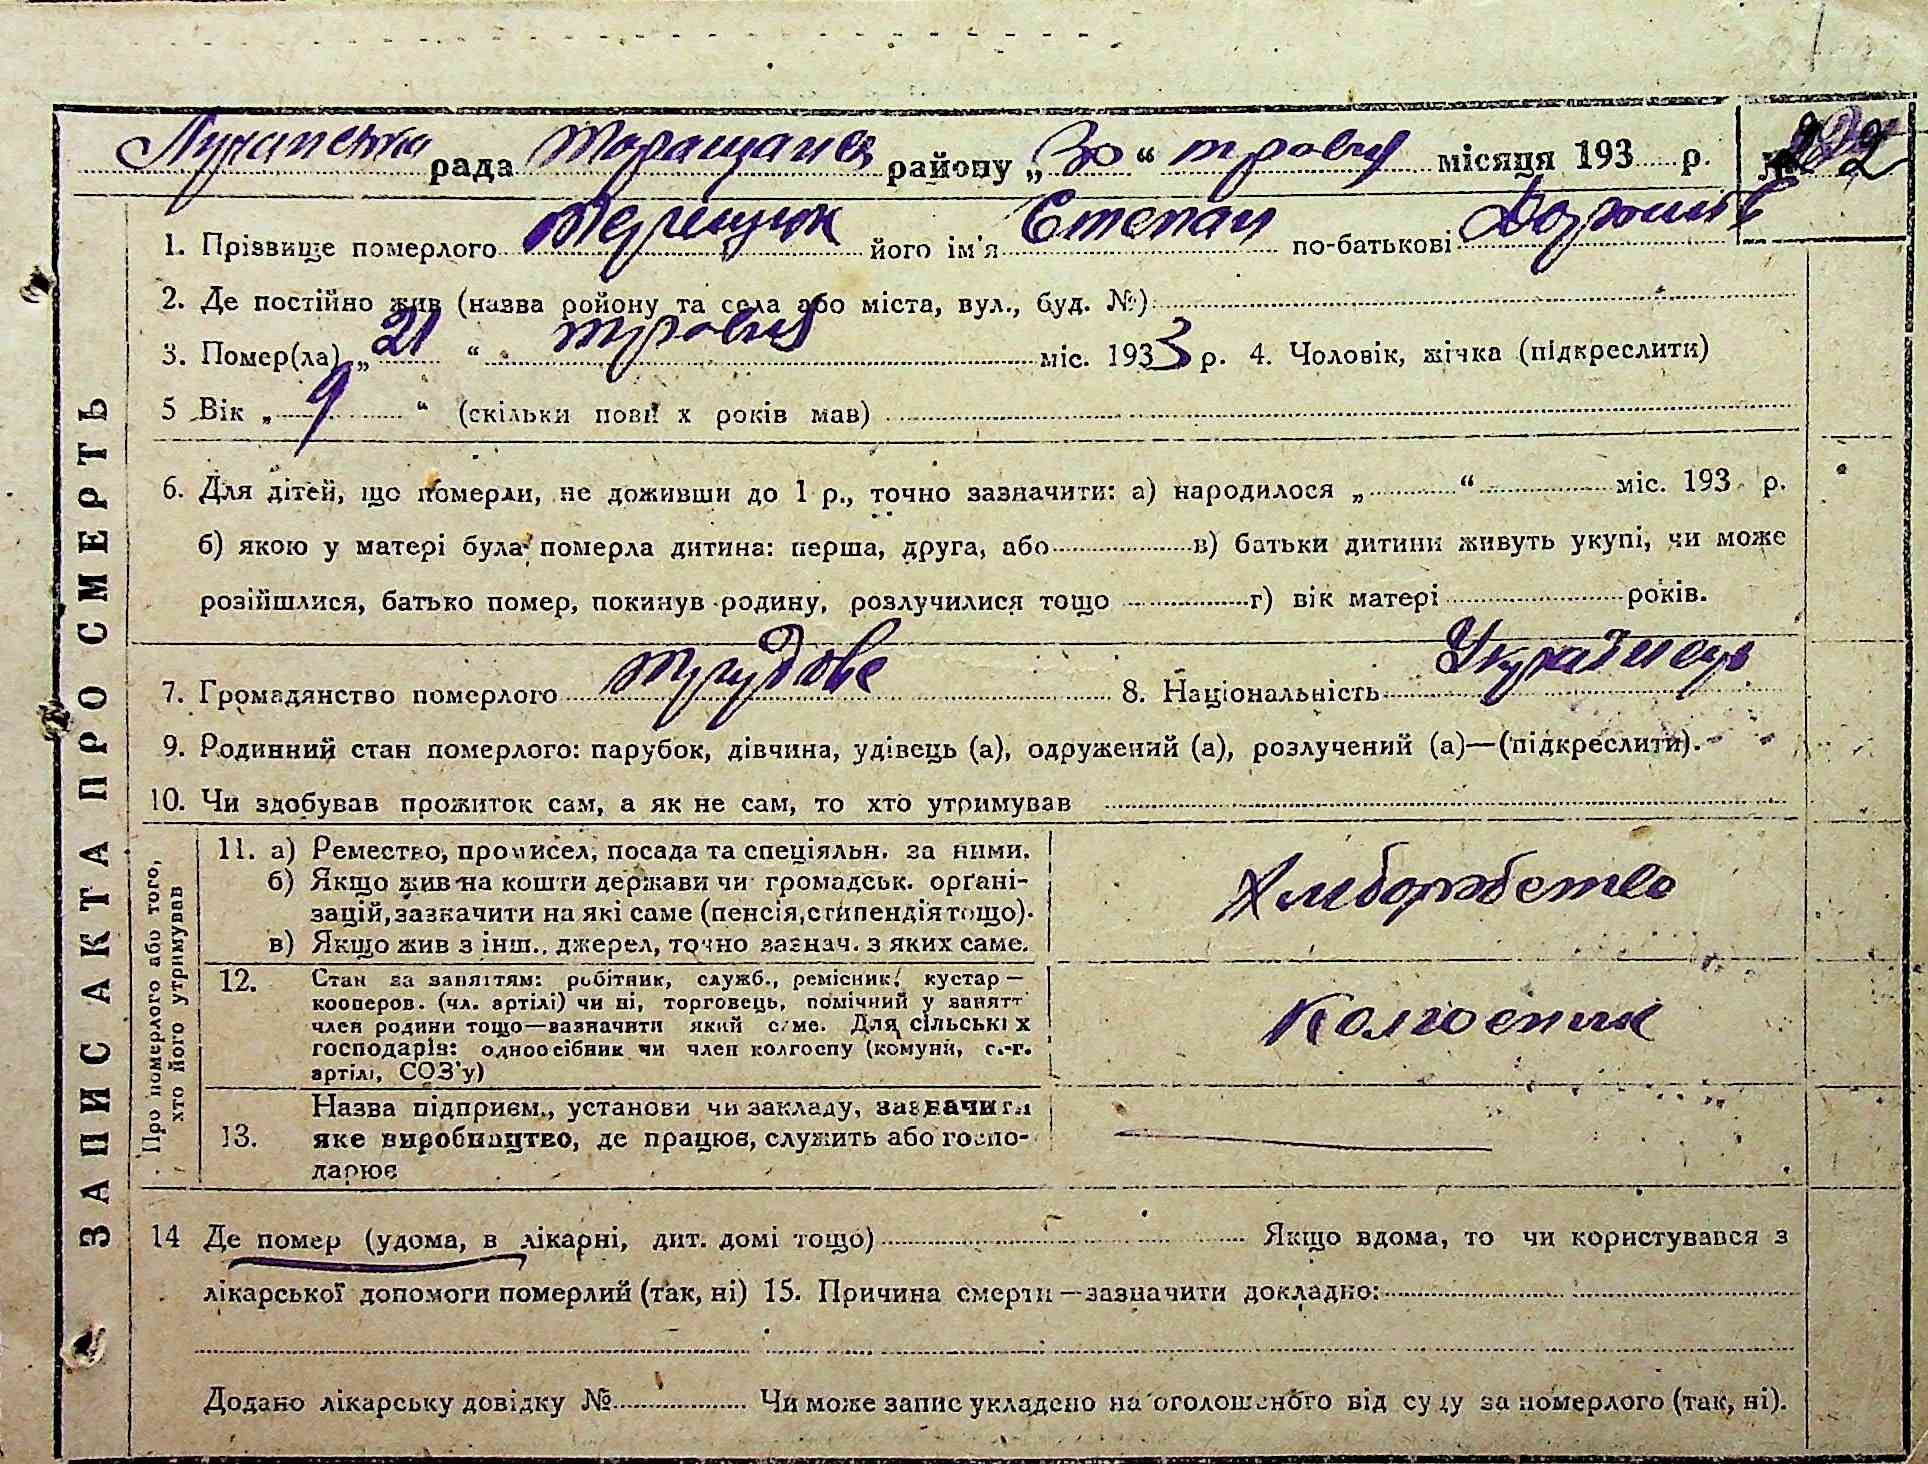 Лучанська рада Таращанс району „30“ травня місяця 193 р. № 222
ЗАПИС АКТА ПРО СМЕРТЬ
1. Прізвище померлого Терещук його ім'я Степан по-батькові
2. Де постійно жив (назва ройону та села або міста, вул., буд. №)
3. Помер(ла) „21“ травня міс. 1933 р. 4. Чоловік, жінка (підкреслити)
5 Вік „9“ (скільки повних років мав)
6. Для дітей, що померли, не доживши до 1 р., точно зазначити: а) народилося „ “ міс. 193 р.
б) якою у матері була померла дитина: перша, друга, або в) батьки дитини живуть укупі, чи може
розійшлися, батько помер, покинув родину, розлучилися тощо г) вік матері років.
7. Громадянство померлого трудове 8. Національність Українець
9. Родинний стан померлого: парубок, дівчина, удівець (а), одружений (а), розлучений (а)—(підкреслити).
10. Чи здобував прожиток сам, а як не сам, то хто утримував
Про померлого або того,
хто його утримував
11. а) Ремество, промисел, посада та спеціяльн. за ними.
б) Якщо жив на кошти держави чи громадськ. орґані-
зацій, зазначити на які саме (пенсія, стипендія тощо).
в) Якщо жив з інш., джерел, точно зазнач. з яких саме.
Хліборобство
12. Стан за заняттям: робітник, служб., ремісник, кустар—
кооперов. (чл. артілі) чи ні, торговець, помічний у занятт
член родини тощо—зазначити який саме. Для сільських
господарів: одноосібник чи член колгоспу (комуни, с.-г.
артілі, СОЗ'у)
Колгоспник
13. Назва підприєм., установи чи закладу, зазначити
яке виробництво, де працює, служить або госпо-
дарює
14 Де помер (удома, в лікарні, дит. домі тощо) Якщо вдома, то чи користувався з
лікарської допомоги померлий (так, ні) 15. Причина смерти—зазначити докладно:
Додано лікарську довідку № Чи може запис укладено на оголошеного від суду за померлого (так, ні).